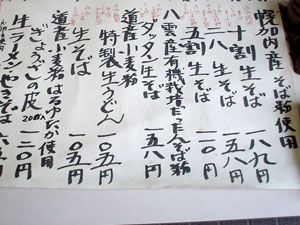 幌加内産そば粉使用
十割生そば 一八九円
二八生そば 一五八円
五割生そば 一一〇円
八雲産有機栽培だったんそば粉
ダッタン生そば 一五八円
道産小麦粉
特製生うどん 一〇五円
生そば 一〇五円
道産小麦粉はるゆたか使用
ぎょうざの皮 20枚入 一三〇円
生ラーメンやきそば 六五円